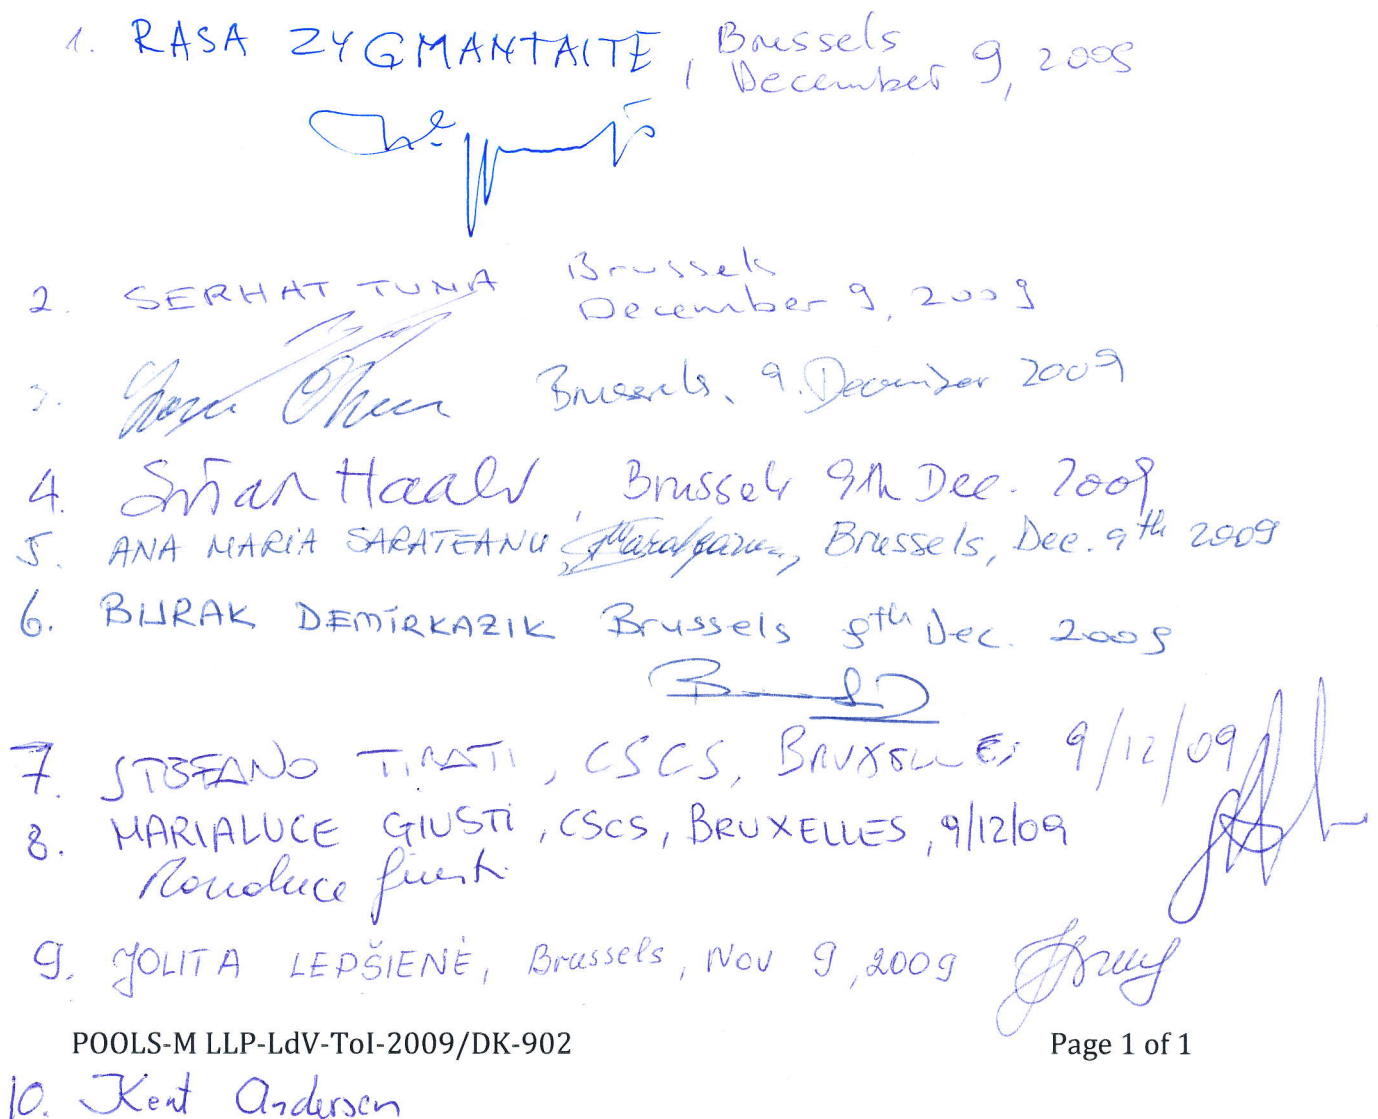 1. RASA ZYGMANTAITE, Brussels
, December 9, 2009
2. SERHAT TUNA Brussels
December 9, 2009
3. Brussels, 9. December 2009
4. Haalv, Brussels 9th Dec. 2009
5. ANA MARIA SARATEANU, Brussels, Dec. 9th 2009
6. BURAK DEMİRKAZIK Brussels 9th Dec. 2009
7. STEFANO TIRATI, CSCS, BRUXELLES 9/12/09
8. MARIALUCE GIUSTI, CSCS, BRUXELLES, 9/12/09
Marialuce Giusti
9. JOLITA LEPŠIENĖ, Brussels, Nov 9, 2009
POOLS-M LLP-LdV-ToI-2009/DK-902 Page 1 of 1
10. Kent Andersen